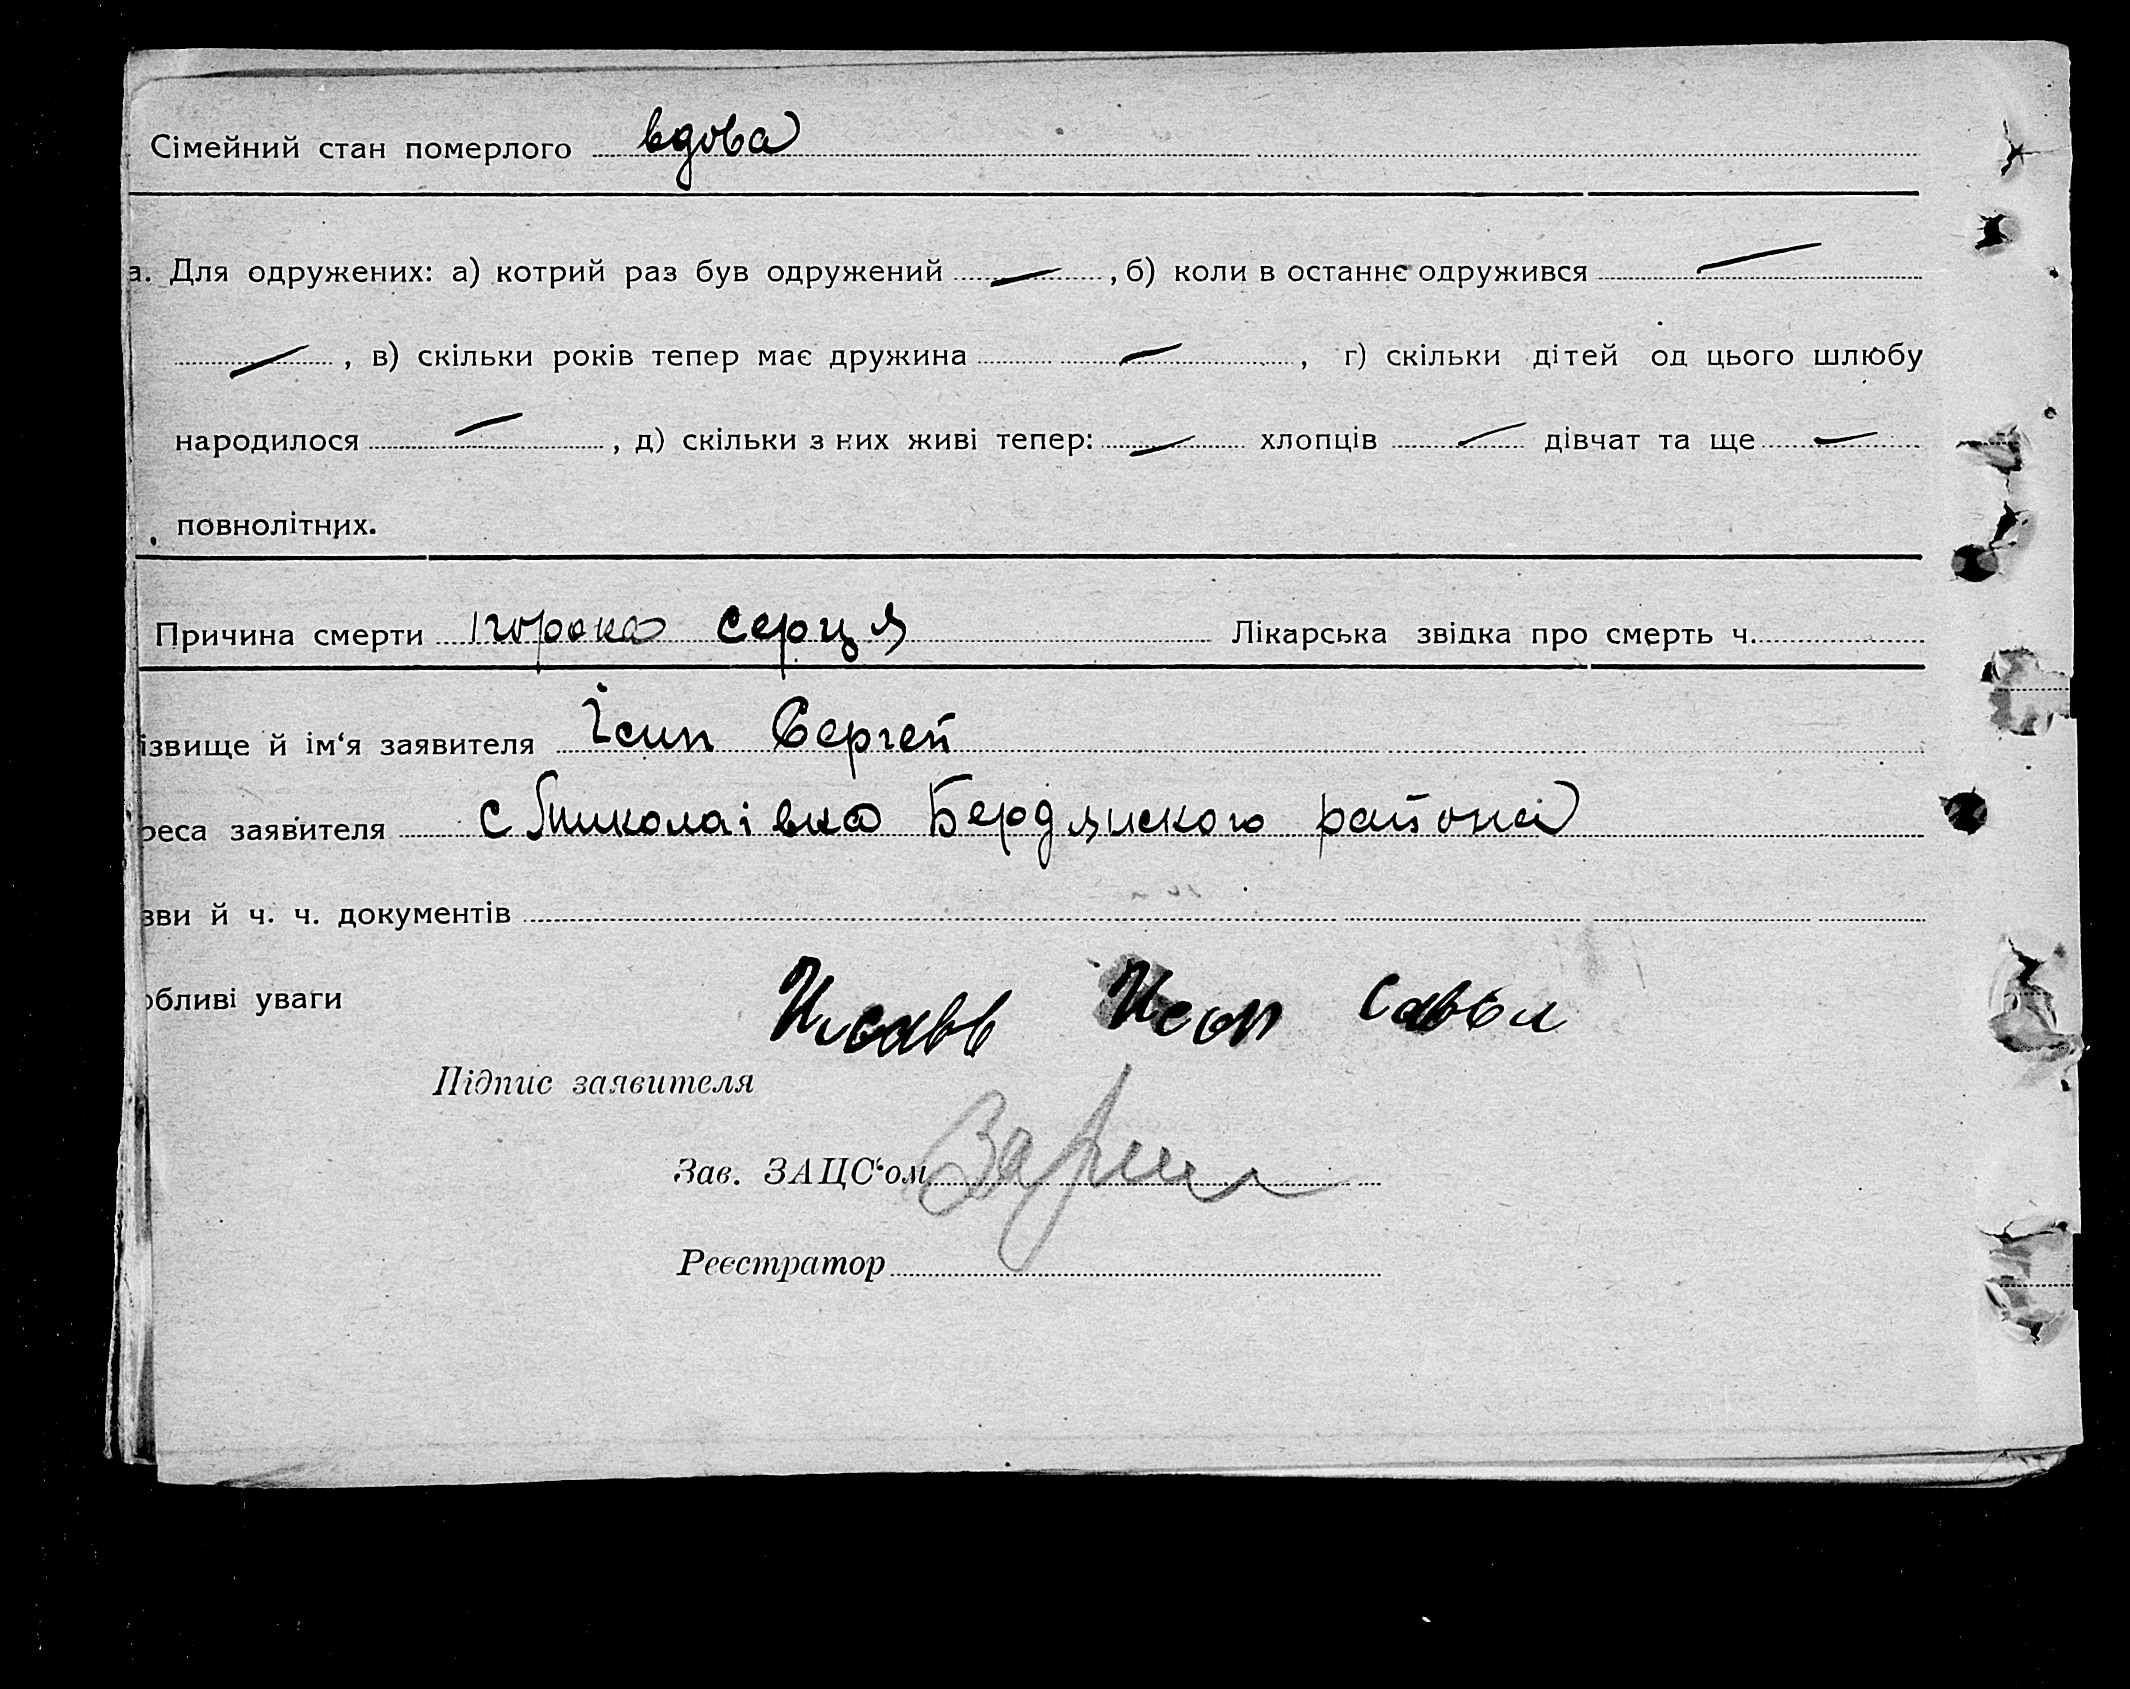 Сімейний стан померлого вдова
а. Для одружених: а) котрий раз був одружений —, б) коли в останнє одружився —
—, в) скільки років тепер має дружина —, г) скільки дітей од цього шлюбу
народилося —, д) скільки з них живі тепер: — хлопців — дівчат та ще —
повнолітних.
Причина смерти серця Лікарська звідка про смерть ч.
ізвище й ім‘я заявителя Їсип Сергей
реса заявителя с Миколаівка Бердянского района
зви й ч. ч. документів
обливі уваги
Підпис заявителя
Зав. ЗАЦС‘ом
Реєстратор